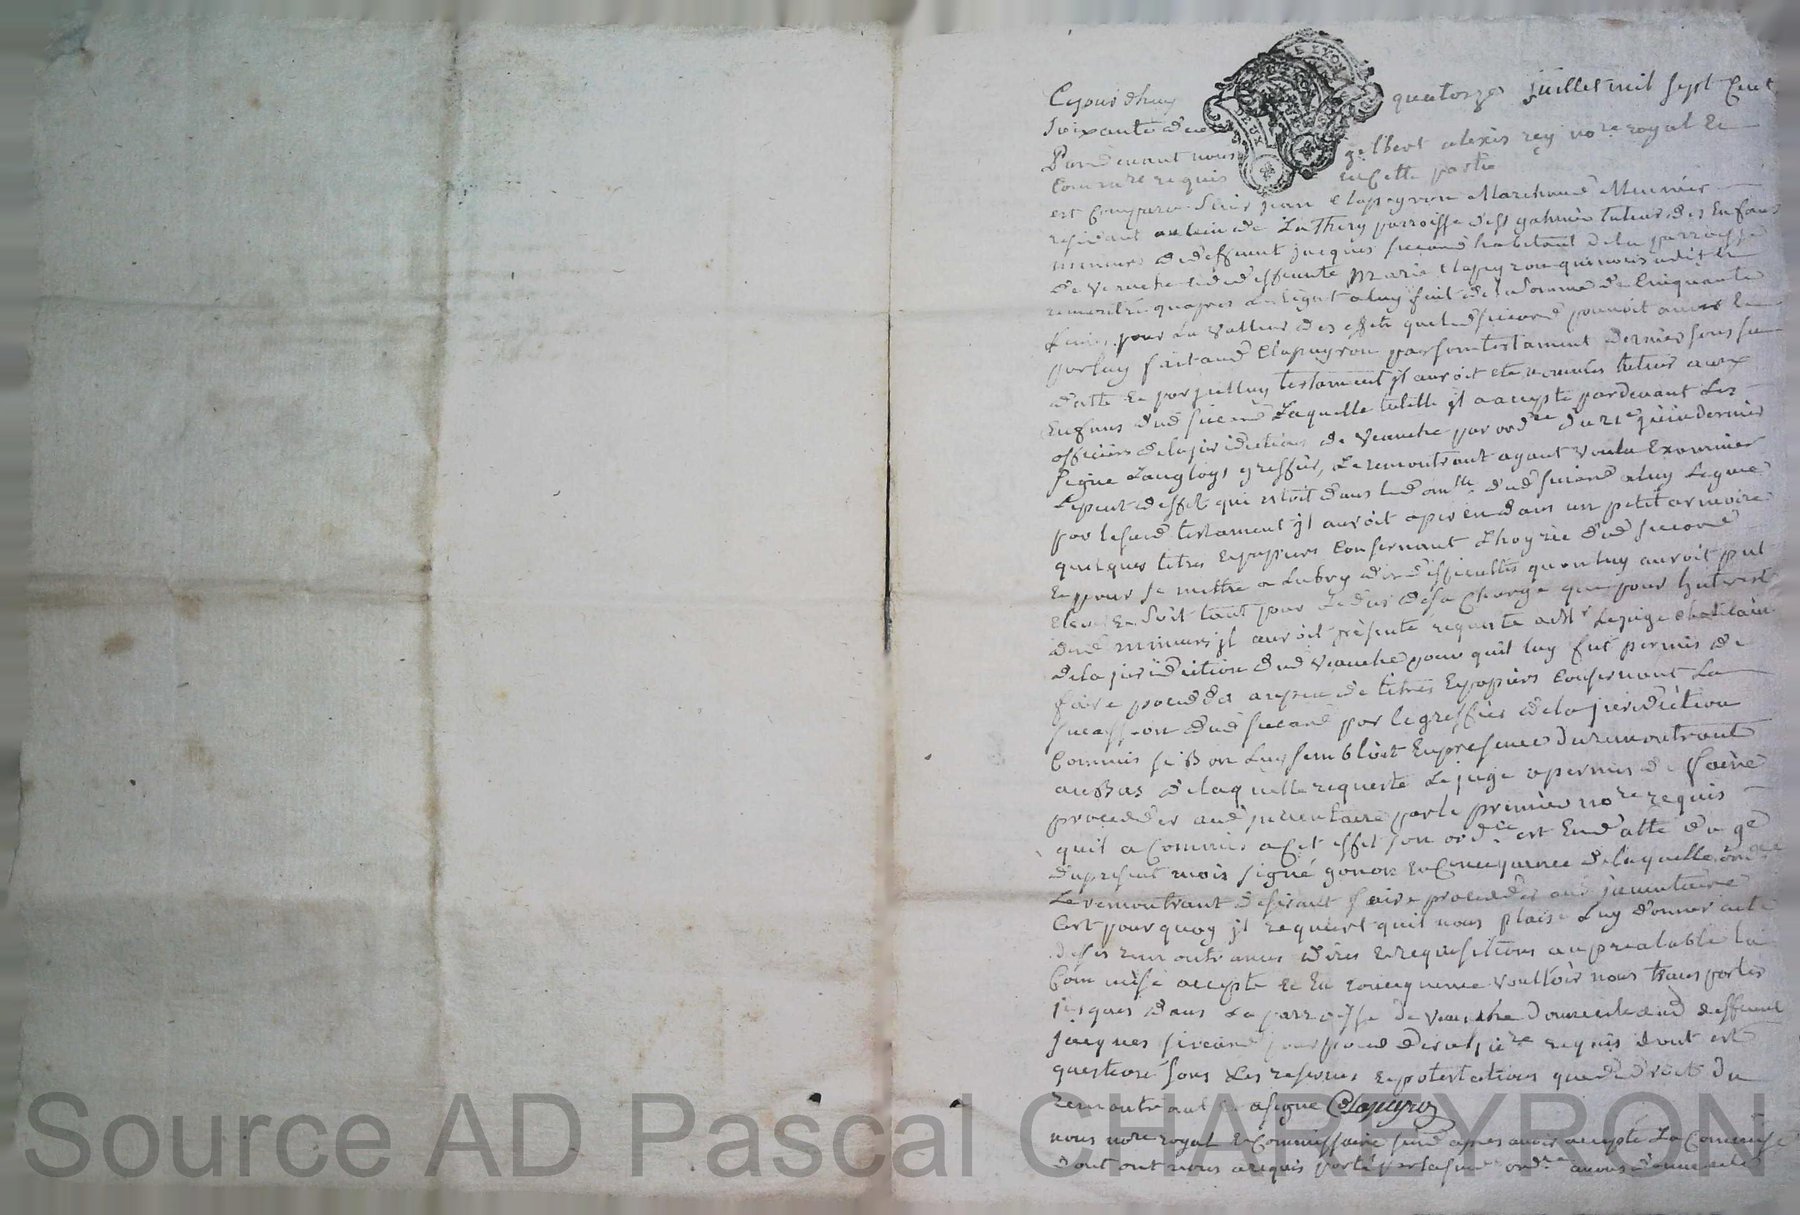 Cejourdhuy quatorze juillet mil sept Cent
soixante deux
Pardevant nous gilbert alexis rey no.re royal Et
Commre requis En Cette partie
est Comparu Sieur jean Clapeyron Marchand Meunier
residant au lieu de La Thery parroisse de St galmier tuteur des Enfans
mineurs de deffunt jacques sicard habitant de la parroisse
de Veauche et de deffunte Marie Clapeyron qui nous a dit Et
remontré quapres Le legat a luy fait de la Somme de Cinquante
Livres pour La Valleur des effets que led sicard pouvoit avoir Et
par luy fait aud Clapeyron par son testament dernier sous sa
datte Et par jcelluy testament jl auroit été nommé tuteur aux
Enfans dud sicard Laquelle tutelle jl a accepté pardevant Les
officiers de la juridiction de Veauche par ord.ce du 21e juin dernier
signé Langloys greffier, Le remontrant ayant voulu Examiner
Le peut d'effet qui estoit dans le dom.lle dud sicard a luy Legué
par le susd testament jl auroit aperçu dans un petit armoire
quelques titres Et papiers Consernant Lhoyrie dud sicard
Et pour se mettre a Labry des difficultés qu on luy auroit put
Elever Et Soit tant pour Le du de sa Charge que pour Linterest
desd mineurs jl auroit presenté requeste a Mr Le juge Chatelain
de la juridiction dud Veauche pour quil luy fut permis de
faire proceder au peu de titres Et papiers Consernant La
succession dud sicard par le greffier de la juridiction
Commis si Bon Luy sembloit En presence du remontrant
au Bas de laquelle requeste Le juge a permis de faire
proceder aud jnventaire par le premier no.re requis
quil a Commis a Cet effet son ord.ce est En datte du 9e
du present mois signé gonon En Consequence de laquelle ord.ce
Le remontrant desirant faire proceder aud jnventaire
Cest pourquoy jl requiert quil nous plaise Luy donner acte
de ses remontrances dires Et requisitions au prealable la
Commise accepté Et En Concequence voulloir nous transporter
jusques dans La parroisse de Veauche domicile dud deffunt
jacques sicard pour proceder a l'jre requis dont est
question sous Les reserves Et protestations que de droit du
remontrant Et a signé Clapeyron
nous no.re royal Et Commissaire susd apres avoir accepté La Commise
dont ont nous a requis porté par lasusd ord.ce avons donné acte
Source AD Pascal CHAREYRON